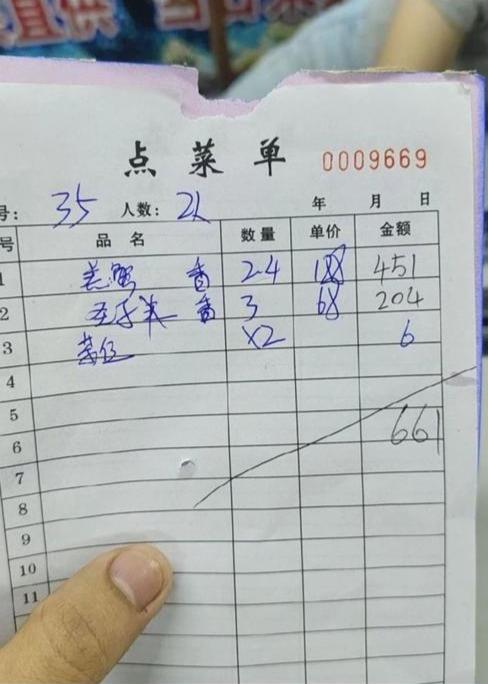 直供
点菜单 0009669
号: 35 人数: 2人 年 月 日
号 品名 数量 单价 金额
1 羔蟹 香 2.4 188 451
2 香 3 68 204
3 ×2 6
4
5
661
6
7
8
9
10
11